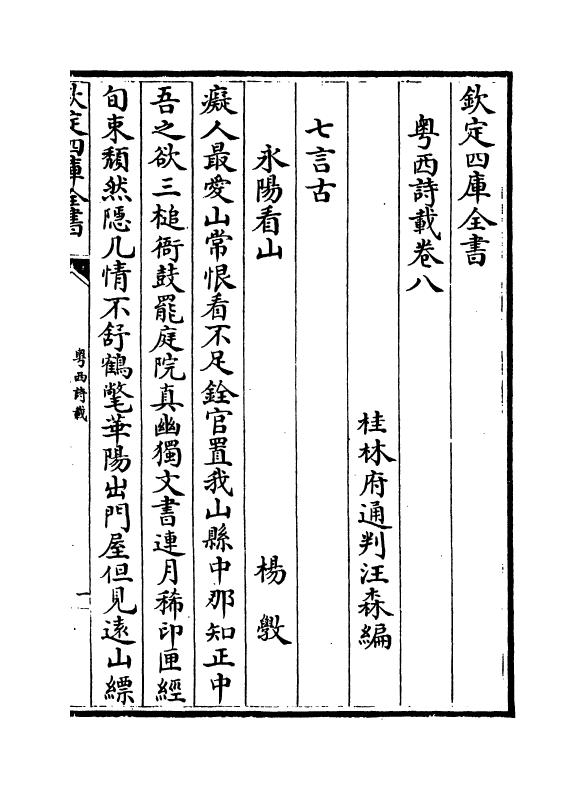 欽定四庫全書
粤西詩載卷八
桂林府通判汪森編
七言古
永陽看山 楊斆
癡人最愛山常恨看不足銓官置我山縣中那知正中
吾之欲三槌衙鼓罷庭院真幽獨文書連月稀印匣經
旬束頽然隠几情不舒鶴氅華陽出門屋但見逺山縹
欽定四庫全書
粤西詩載
一